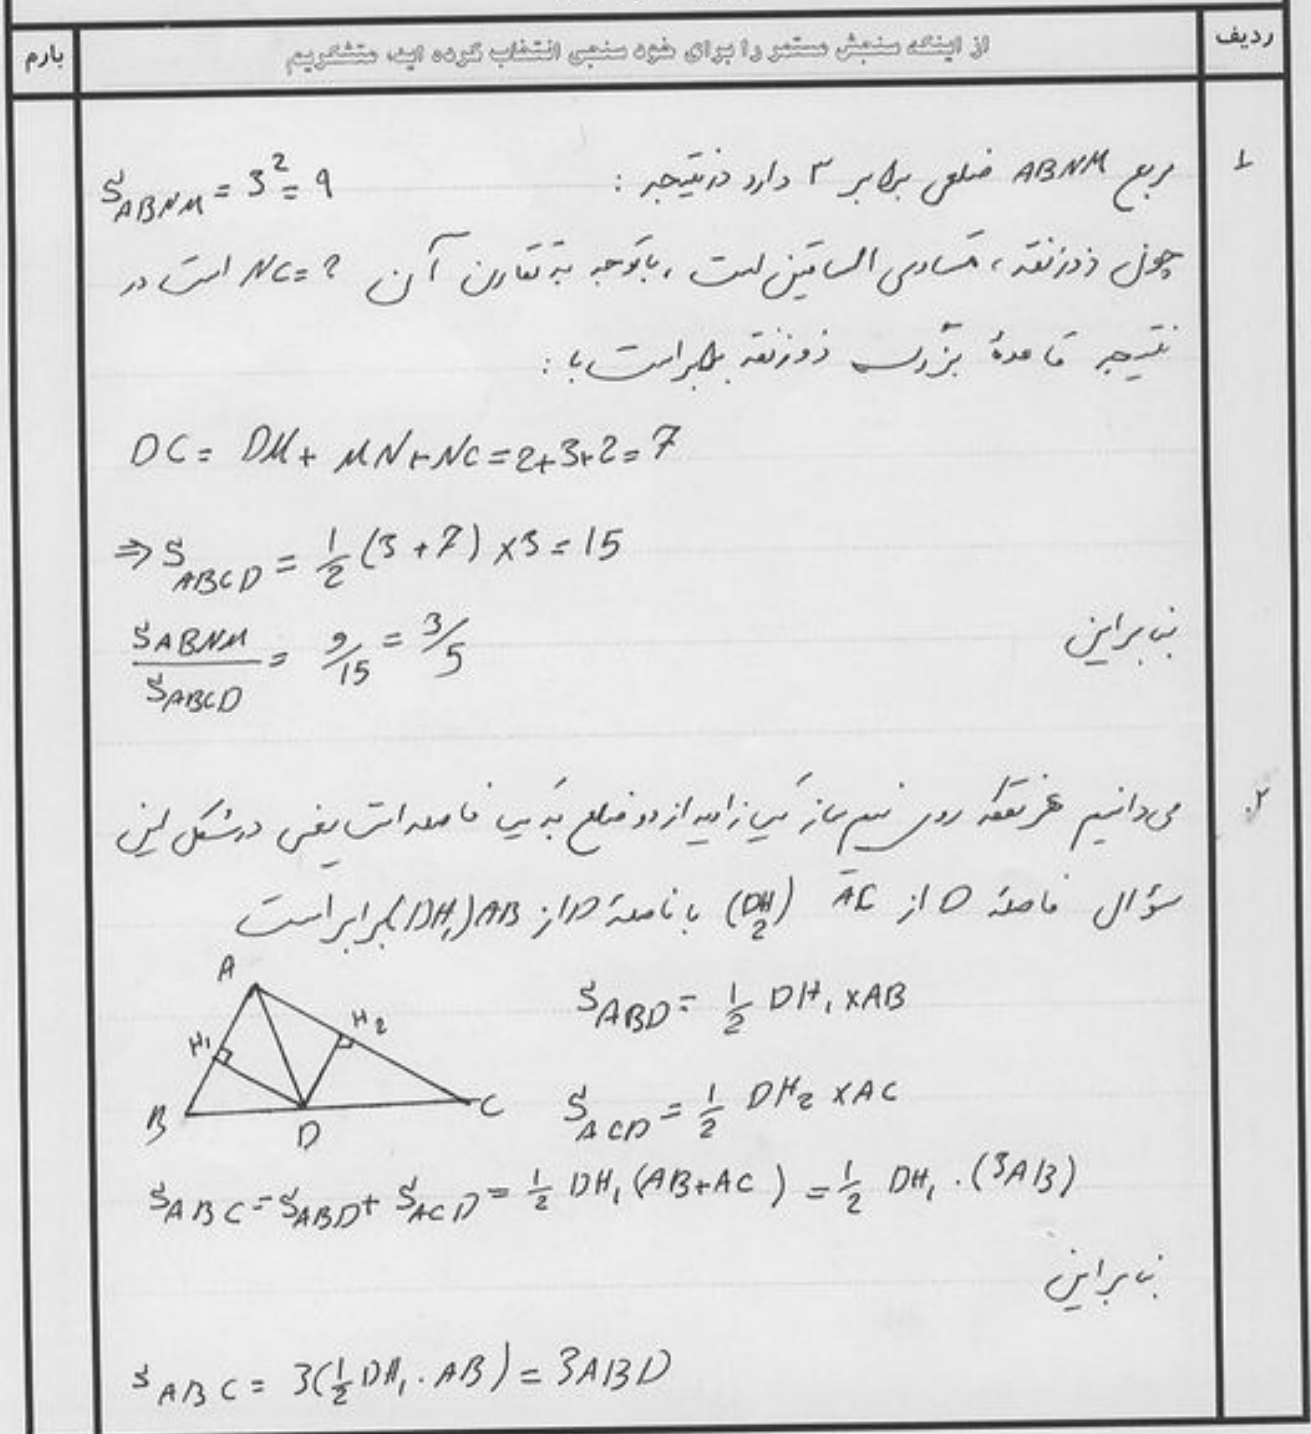 ردیف
از اینکه سنجش مستمر را برای خود سنجی انتخاب کرده اید، متشکریم
بارم
۱
مربع ABNM ضلعی برابر ۳ دارد در نتیجه :
S_ABNM = 3² = 9
چون ذوزنقه ، متساوی الساقین است ، باتوجه به تقارن آن NC=2 است در
نتیجه قاعدهٔ بزرگ ذوزنقه برابر است با :
DC = DM + MN + NC = 2+3+2 = 7
⇒ S_ABCD = 1/2 (3 + 7) × 3 = 15
بنابراین
S_ABNM / S_ABCD = 9/15 = 3/5
۲.
می دانیم هر نقطه روی نیم ساز یک زاویه از دو ضلع به یک فاصله است یعنی در شکل این
سؤال فاصلهٔ D از AC (DH2) با فاصلهٔ D از AB (DH1) برابر است
A
H1
H2
B
D
C
S_ABD = 1/2 DH1 × AB
S_ACD = 1/2 DH2 × AC
S_ABC = S_ABD + S_ACD = 1/2 DH1 (AB+AC) = 1/2 DH1 . (3AB)
بنابراین
S_ABC = 3(1/2 DH1 . AB) = 3ABD